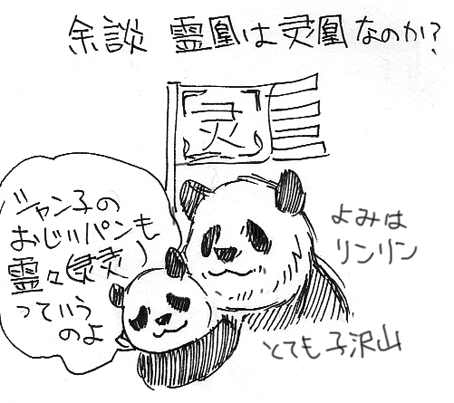 余談 霊凰は灵凰なのか?
灵
シャン子の
おじいパンも
霊々(灵灵)
っていう
のよ
よみは
リンリン
とても子沢山